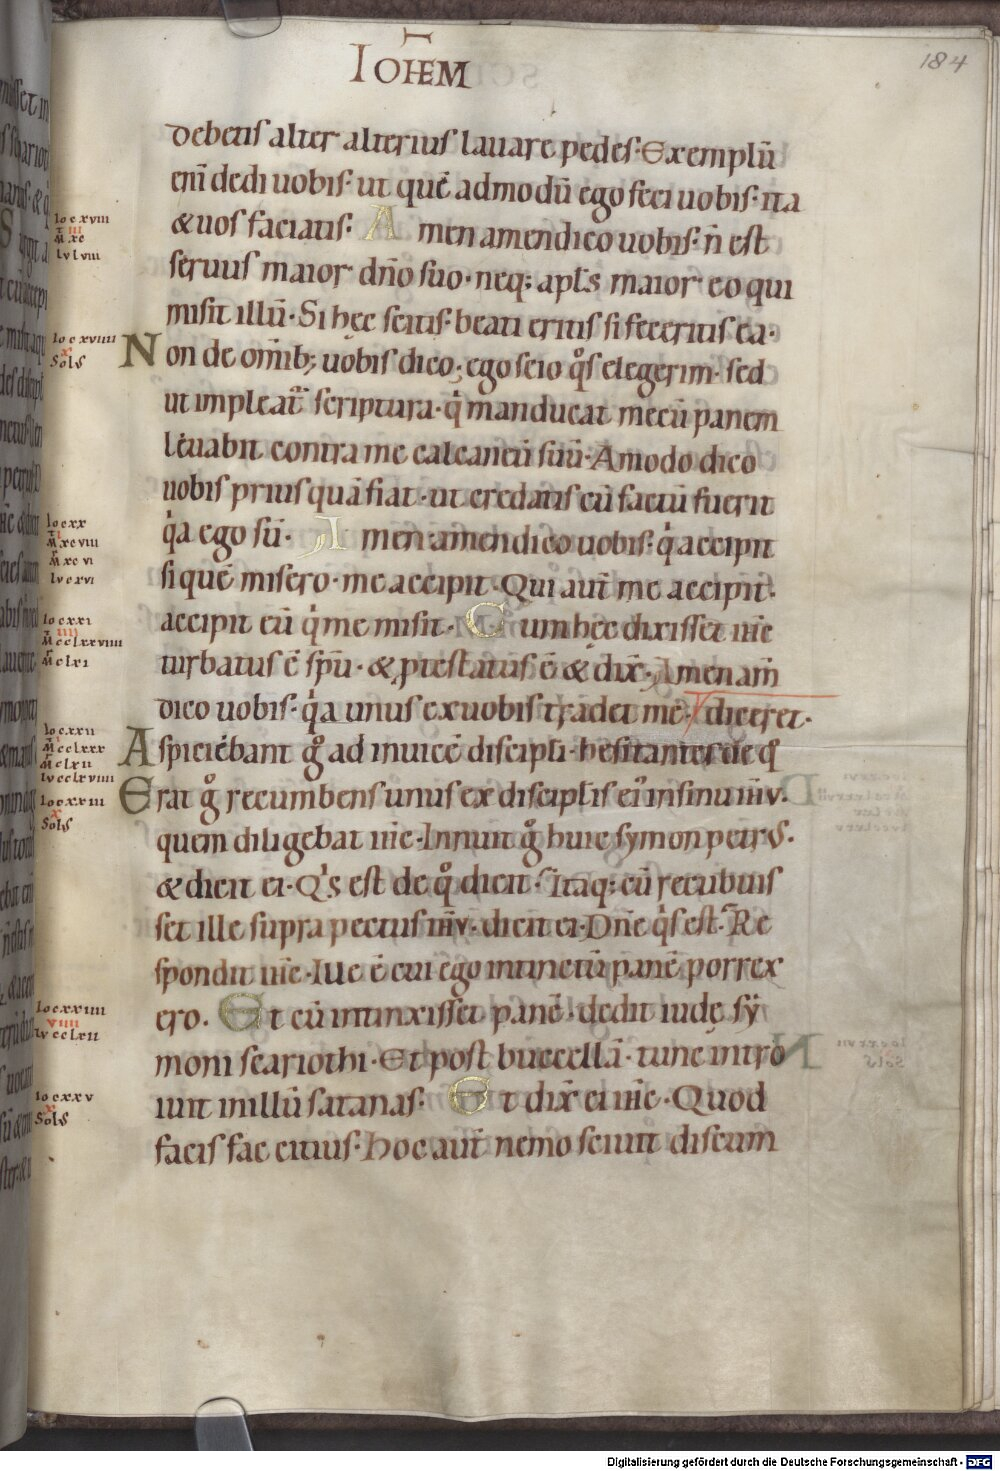 IOHEM
184
debetis alter alterius lauare pedes· Exemplū
enī dedi uobis· ut quē admodū ego feci uobis· ita
& uos faciatis· Amen amen dico uobis· n̄ est
seruus maior dn̄o suo· neq; apl̄s maior eo qui
misit illū· Si hęc scitis· beati eritis si feceritis ea·
Non de om̄ib; uobis dico· ego scio q̊s elegerim· sed
ut impleat̄ scriptura· q̇ manducat mecū panem
leuabit contra me calcaneū suū· Amodo dico
uobis priusquā fiat· ut credatis cū factū fuerit
q̇a ego sū· Amen amen dico uobis· q̇ accipit
si quē misero· me accipit· Qui aut̄ me accipit·
accipit eū q̇ me misit· Cum hęc dixisset ih̄c
turbatus ē sp̄u· & ꝓtestatus ē & dix̄· Amen am̄
dico uobis· q̇a unus ex uobis tradet me· diceret·
Aspiciebant g̊ ad inuicē discipli· hesitantes de q̊
Erat g̊ recumbens unus ex discipl̄is ei᷒ in sinu ih̄v·
quem diligebat ih̄c· Innuit g̊ huic symon petrus·
& dicit ei· Q̇s est de q̊ dicit· Itaq; cū recubuis
set ille supra pectus ih̄v· dicit ei· Dn̄e q̇s est· Re
spondit ih̄c· Ille ē cui ego intinctū panē porrex
ero· Et cū intinxisset panē· dedit iudę sy
moni scariothi· Et post buccellā· tunc intro
iuit in illū satanas· Et dix̄ ei ih̄c· Quod
facis fac citius· Hoc aut̄ nemo sciuit discum
Io cxviii
M xc
lv lviii
Io cxviiii
x
Solus
Io cxx
i
M xcviii
M xcvi
lv cxvi
Io cxxi
iiii
M cclxxviiii
M clxi
Io cxxii
i
M cclxxx
M clxii
lv cclxviiii
Io cxxiii
x
Solus
Io cxxiiii
viiii
lv cclxii
Io cxxv
x
Solus
Digitalisierung gefördert durch die Deutsche Forschungsgemeinschaft - DFG